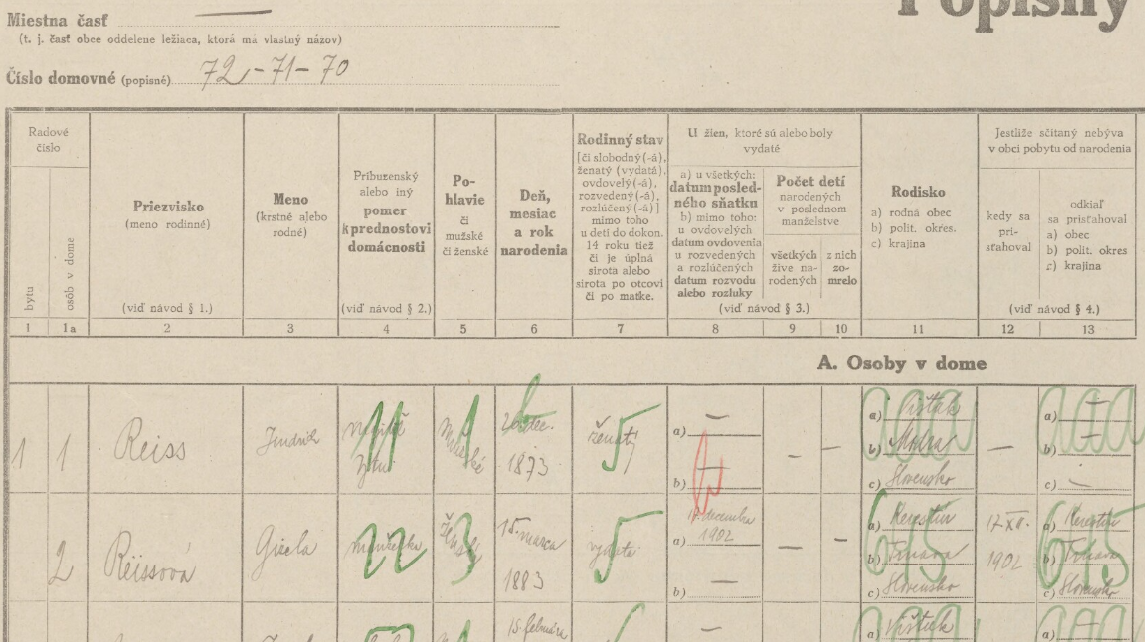 Popisný
Miestna časť
(t. j. časť obce oddelene ležiaca, ktorá má vlastný názov)
Číslo domovné (popisné) 72-71-70
Radové
číslo
bytu
osôb v dome
Priezvisko
(meno rodinné)
(viď návod § 1.)
Meno
(krstné alebo
rodné)
Príbuzenský
alebo iný
pomer
k prednostovi
domácnosti
(viď návod § 2.)
Po-
hlavie
či
mužské
či ženské
Deň,
mesiac
a rok
narodenia
Rodinný stav
[či slobodný(-á),
ženatý (vydatá),
ovdovelý(-á),
rozvedený(-á),
rozlúčený(-á)]
mimo toho
u detí do dokon.
14 roku tiež
či je úplná
sirota alebo
sirota po otcovi
či po matke.
U žien, ktoré sú alebo boly
vydaté
a) u všetkých:
datum posled-
ného sňatku
b) mimo toho:
u ovdovelých
datum ovdovenia
u rozvedených
a rozlúčených
datum rozvodu
alebo rozluky
Počet detí
narodených
v poslednom
manželstve
všetkých
žive na-
rodených
z nich
zo-
mrelo
(viď návod § 3.)
Rodisko
a) rodná obec
b) polit. okres.
c) krajina
Jestliže sčítaný nebýva
v obci pobytu od narodenia
kedy sa
pri-
sťahoval
odkiaľ
sa prisťahoval
a) obec
b) polit. okres
c) krajina
(viď návod § 4.)
1 1a 2 3 4 5 6 7 8 9 10 11 12 13
A. Osoby v dome
1 1 Reiss Jindrich 11 1 dec. 1873 ženatý 5
a) — b) — — —
a) Vištuk
b) Modra
c) Slovensko
—
a) —
b) —
c) —
2 Reissová Gizela manželka 22 3 15. marca 1883 vydatá 5
a) 17. decembra 1902
b) —
— —
a) Kerestúr
b) Trnava
c) Slovensko
645
17. XII. 1902
a) Kerestúr
b) Trnava
c) Slovensko
645
15. februára
—
a) Vištuk
a)